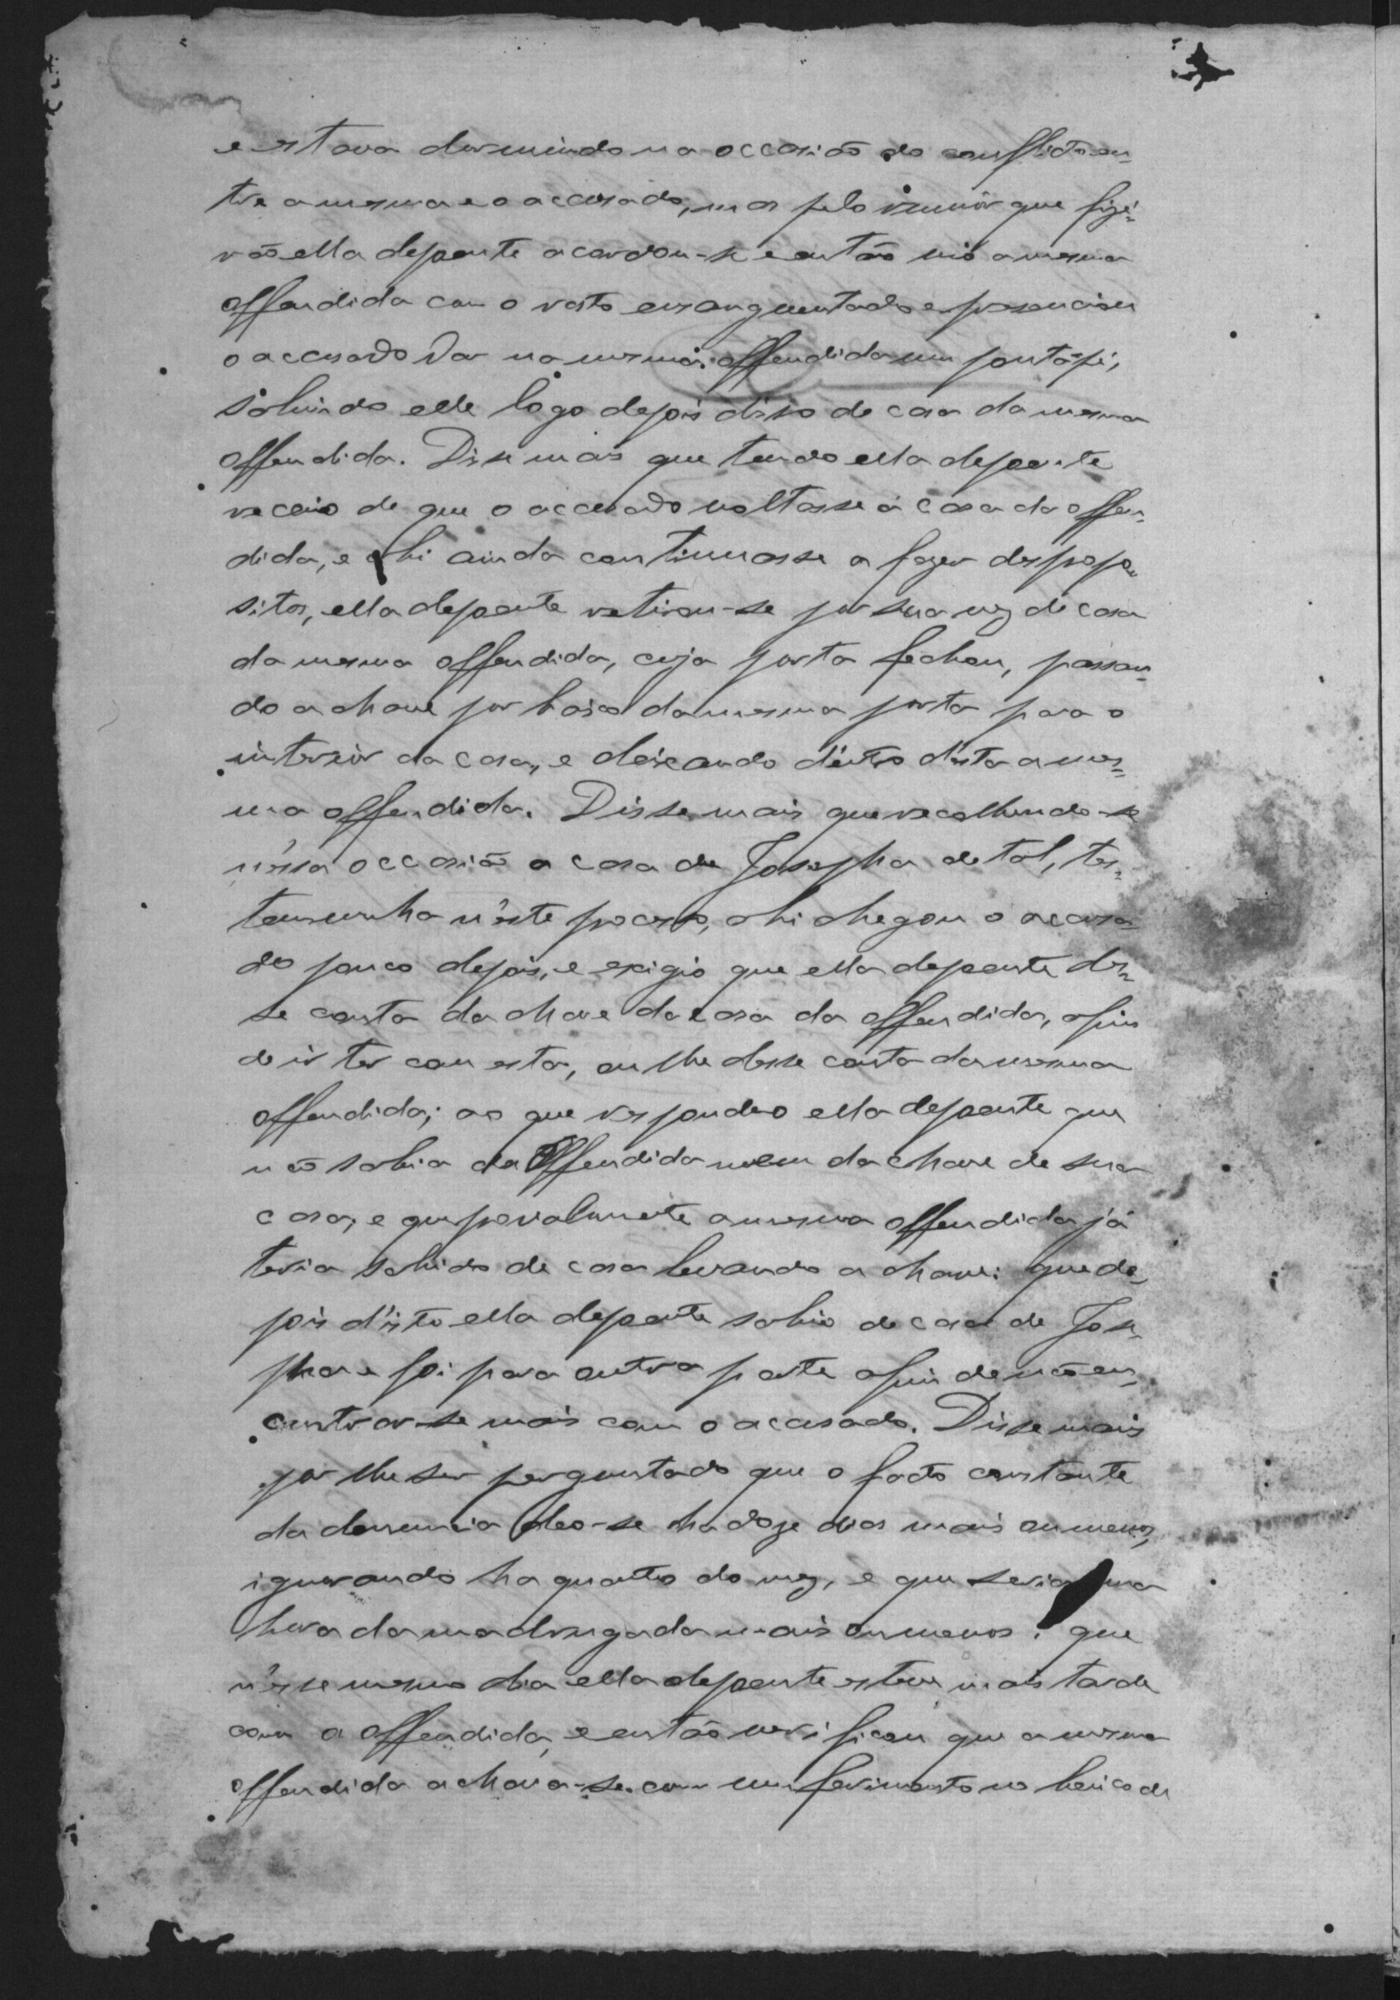 estava dormindo na occasião do conflicto en-
tre a mesma e o accusado, mas pelo rumôr que fizé-
rão ella depoente acordou-se e então vio a mesma
offendida com o rosto ensanguentado e presenciou
o accusado dar na mesma offendida um pontapé,
sahindo elle logo depois disso de casa da mesma
offendida. Disse mais que tendo ella depoente
receio de que o accusado voltasse á casa da offen-
dida, e ahi ainda continuasse a fazer desprop-
sitos, ella depoente retirou-se por sua vez de casa
da mesma offendida, cuja porta fechou, passan-
do a chave por baixo da mesma porta para o
interiôr da casa, e deixando dentro d'esta a mes-
ma offendida. Disse mais que recolhendo-se
n'essa occasião a casa de Josepha de tal, tes-
temunha n'este processo, ahi chegou o accusa-
do pouco depois, e exigio que ella depoente des-
se conta da chave da casa da offendida, afim
de ir ter com esta, ou lhe desse conta da mesma
offendida; ao que respondeo ella depoente que
não sabia da offendida nem da chave de sua
casa, e que provavelmente a mesma offendida já
teria sahido de casa levando a chave: que de-
pois d'isto ella depoente sahio de casa de Jose-
pha e foi para outra parte afim de não en-
contrar-se mais com o accusado. Disse mais
por lhe ser perguntado que o facto constante
da denuncia deo-se ha doze dias mais ou menos,
ignorando ha quanto do mez, e que seria uma
hora da madrugada mais ou menos: que
n'esse mesmo dia ella depoente esteve mais tarde
com a offendida, e então verificou que a mesma
offendida achava-se com um ferimento no beiço de